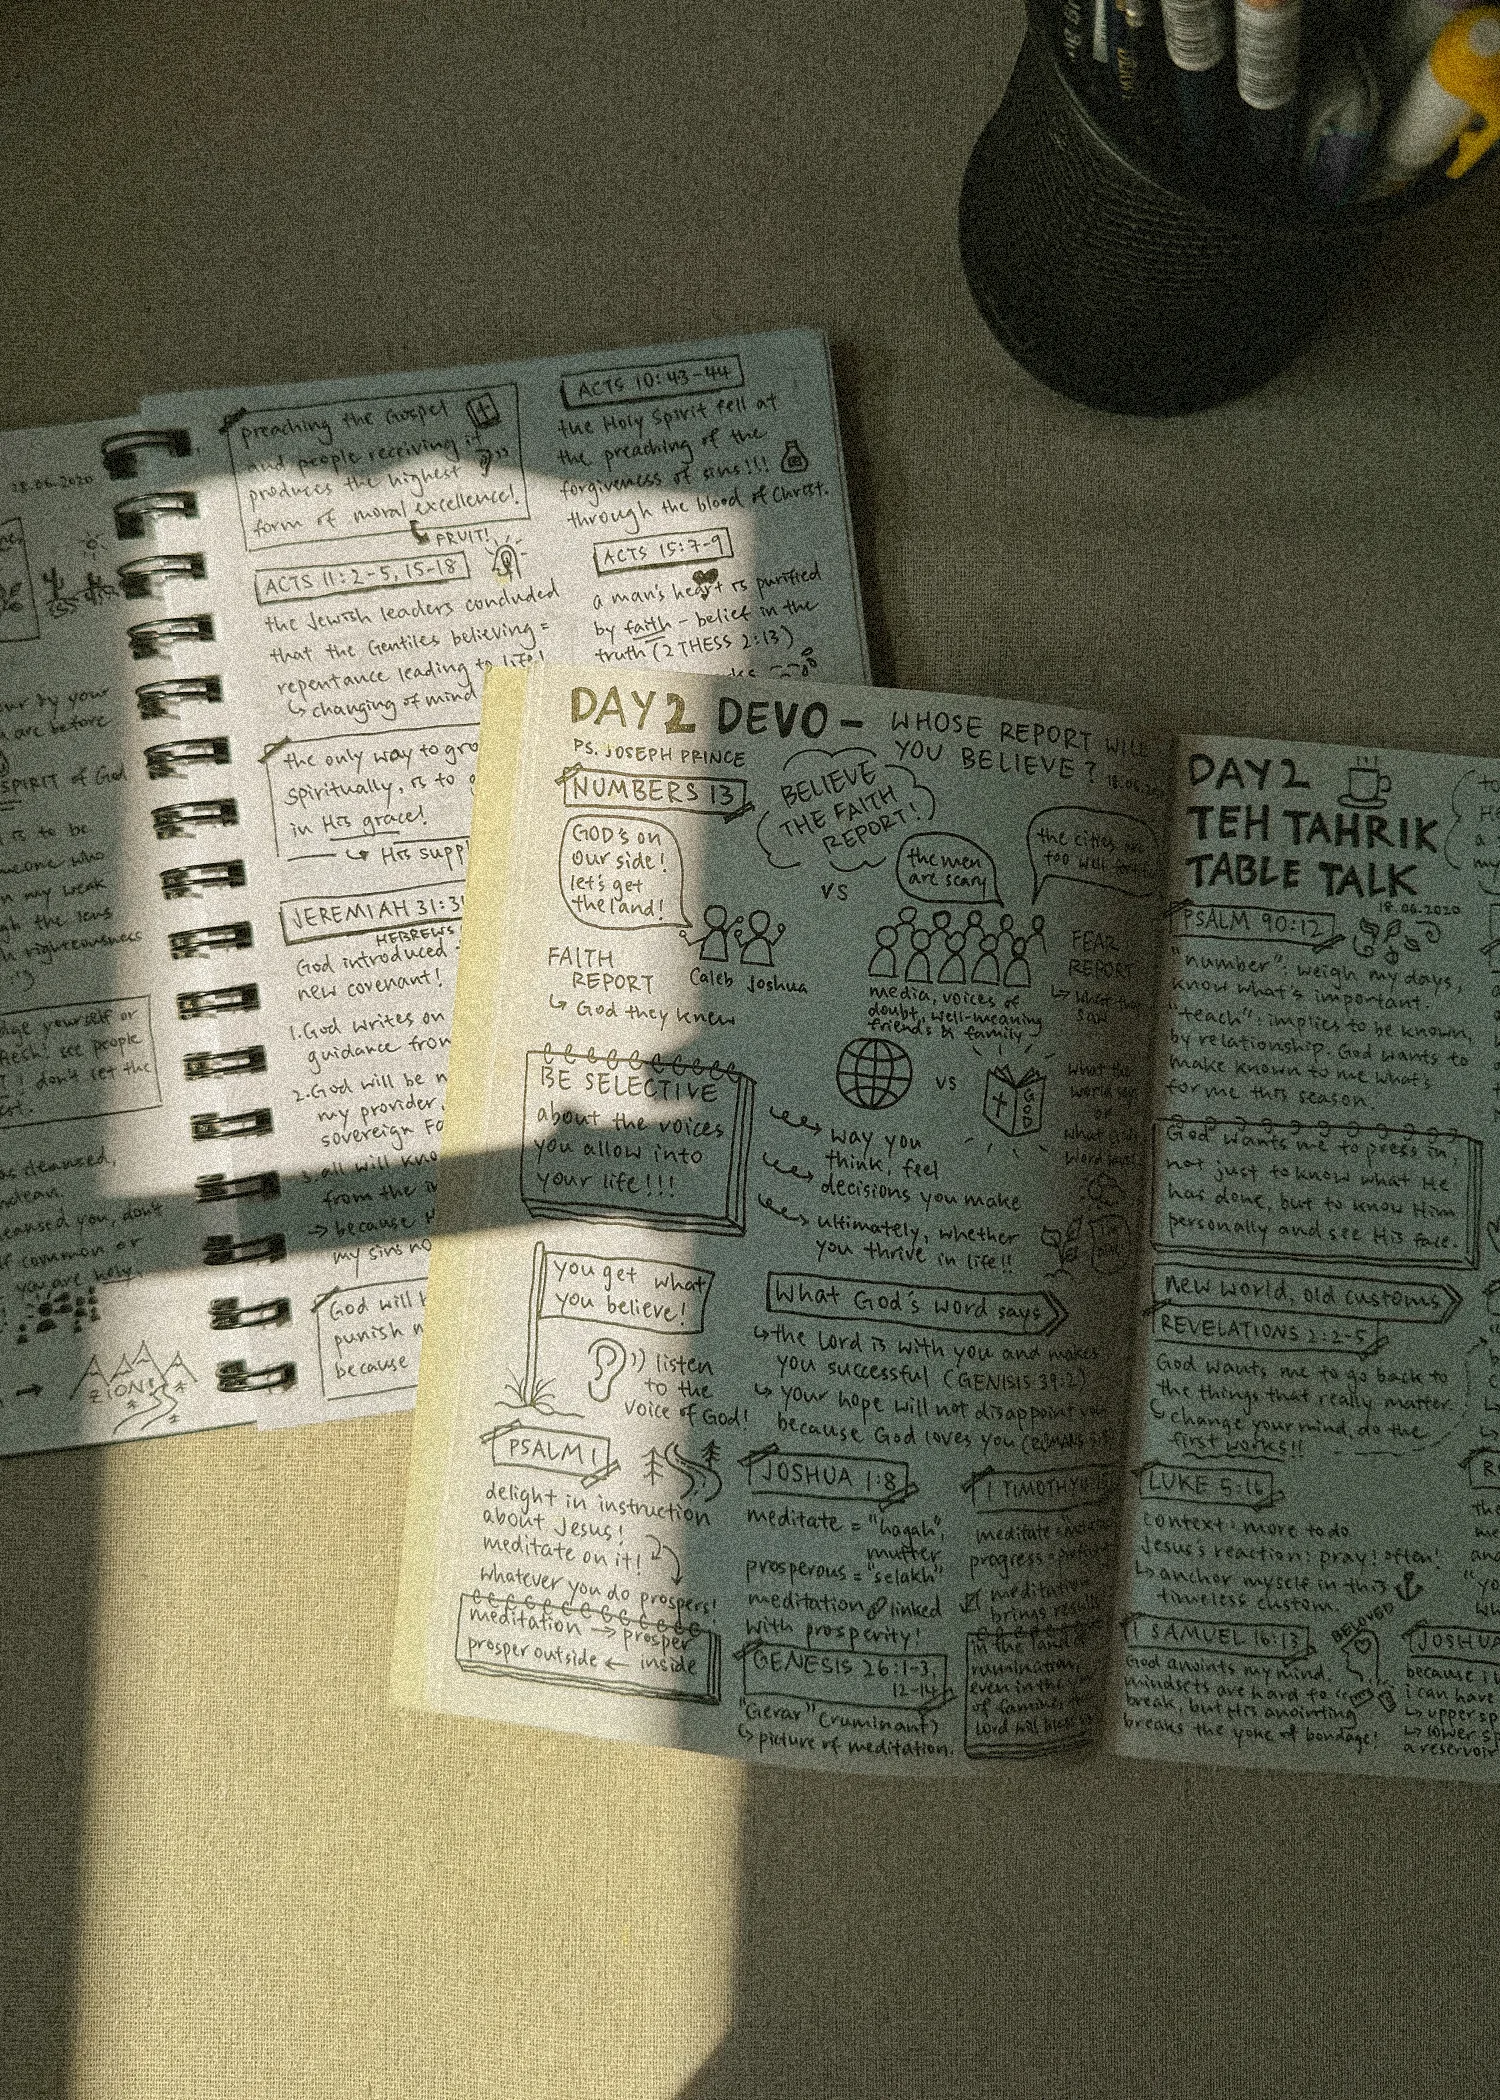 18.06.2020
our by your
are before
SPIRIT of God
is to be
someone who
in my weak
the lens
righteousness
yourself or
flesh! see people
I don't let the
cleansed,
cleansed you, don't
common or
you are holy.
ZION!
preaching the Gospel
and people receiving it
produces the highest
form of moral excellence!
FRUIT!
ACTS 11:2-5, 15-18
the Jewish leaders concluded
that the Gentiles believing =
repentance leading to life!
↳ changing of mind
the only way to gro
spiritually, is to g
in His grace!
↳ His supp
JEREMIAH 31:3
HEBREWS
God introduced
new covenant!
1. God writes on
guidance from
2. God will be m
my provider,
sovereign Fa
3. all will kno
from the
→ because H
my sins no
God will
punish m
because
ACTS 10:43-44
the Holy Spirit fell at
the preaching of the
forgiveness of sins!!!
through the blood of Christ.
ACTS 15:7-9
a man's heart is purified
by faith - belief in the
truth (2 THESS 2:13)
DAY 2 DEVO - WHOSE REPORT WILL
YOU BELIEVE?
PS. JOSEPH PRINCE
18.06.202
NUMBERS 13
BELIEVE
THE FAITH
REPORT!
GOD's on
our side!
let's get
the land!
VS
the men
are scary
the cities
too well
FAITH
REPORT
↳ God they knew
Caleb Joshua
media, voices of
doubt, well-meaning
friends & family
FEAR
REPORT
↳ what they
saw
BE SELECTIVE
about the voices
you allow into
your life!!!
VS
GOD
what the
world says
or
what God's
word says?
way you
think, feel
decisions you make
ultimately, whether
you thrive in life!!
you get what
you believe!
listen
to the
voice of God!
What God's word says
↳ the Lord is with you and makes
you successful (GENISIS 39:2)
↳ your hope will not disappoint you
because God loves you (ROMANS 5:5)
PSALM 1
delight in instruction
about Jesus!
meditate on it!
whatever you do prospers!
meditation → prosper
prosper outside ← inside
JOSHUA 1:8
meditate = "hagah",
mutter
prosperous = "selakh"
meditation linked
with prosperity!
GENESIS 26:1-3,
12-14
"Gerar" (ruminant)
↳ picture of meditation.
1 TIMOTHY
meditate =
progress =
meditation
brings results
in the land of
rumination,
even in the
of famine, the
Lord will bless
DAY 2
TEH TAHRIK
TABLE TALK
18.06.2020
PSALM 90:12
"number": weigh my days,
know what's important.
"teach": implies to be known,
by relationship. God wants to
make known to me what's
for me this season.
God wants me to press in,
not just to know what He
has done, but to know Him
personally and see His face.
new world, old customs
REVELATIONS 2:2-5
God wants me to go back to
the things that really matter.
↳ change your mind, do the
first works!!
LUKE 5:16
context: more to do
Jesus's reaction: pray! often!
↳ anchor myself in this
timeless custom.
1 SAMUEL 16:13
BELOVED
God anoints my mind.
mindsets are hard to
break, but His anointing
breaks the yoke of bondage!
JOSHUA
because I
i can have
↳ upper sp
↳ lower sp
a reservoir